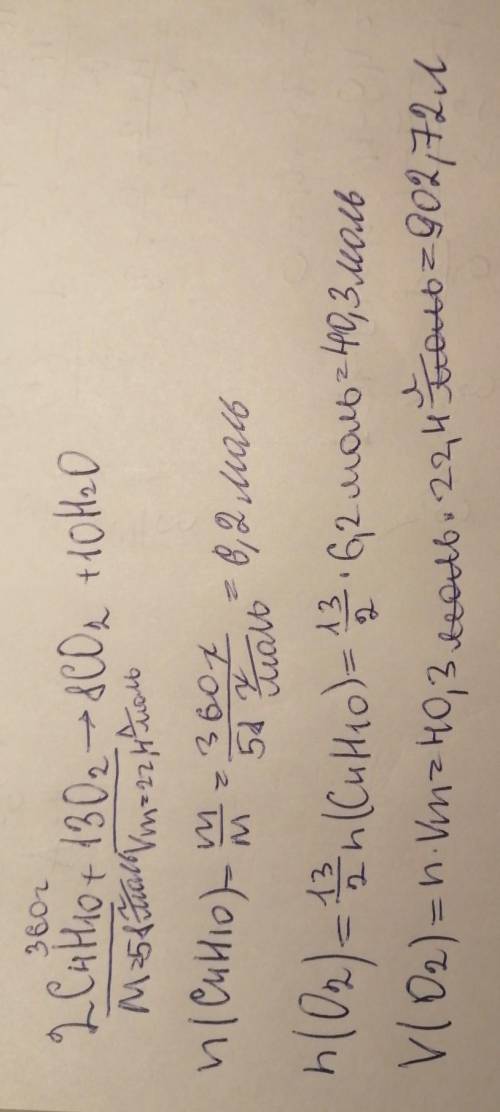 360г
2C4H10 + 13O2 → 8CO2 + 10H2O
M=58 г/моль Vm=22,4 л/моль
n(C4H10) = m/M = 360г / 58 г/моль = 6,2 моль
n(O2) = 13/2 n(C4H10) = 13/2 · 6,2 моль = 40,3 моль
V(O2) = n · Vm = 40,3 моль · 22,4 л/моль = 902,72 л